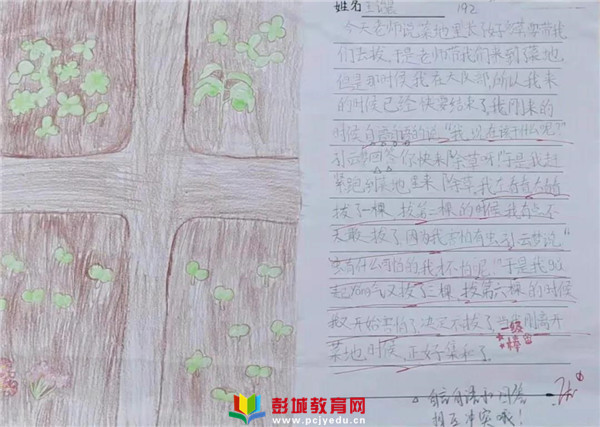 姓名 192
今天老师说菜地里长了好多草要带我
们去拔,于是老师带我们来到了菜地,
但是那时候我在大队部,所以我来
的时候已经快要结束了,我刚来的
时候自言自语的说:“我现在该干什么呢?”
回答:你快来除草呀!于是我赶
紧跑到菜地里来除草,我
拔了一棵,拔第二棵的时候我有点不
太敢拔了,因为我害怕有虫,说:“
虫有什么可怕的我才不怕呢!”于是我
起又拔了三棵,拔第六棵的时候
我又开始害怕了,决定不拔了,当我刚离开
菜地时候,正好集和了。
一级
棒
自言自语和回答
相互冲突哦!
彭城教育网
www.pcjyedu.cn